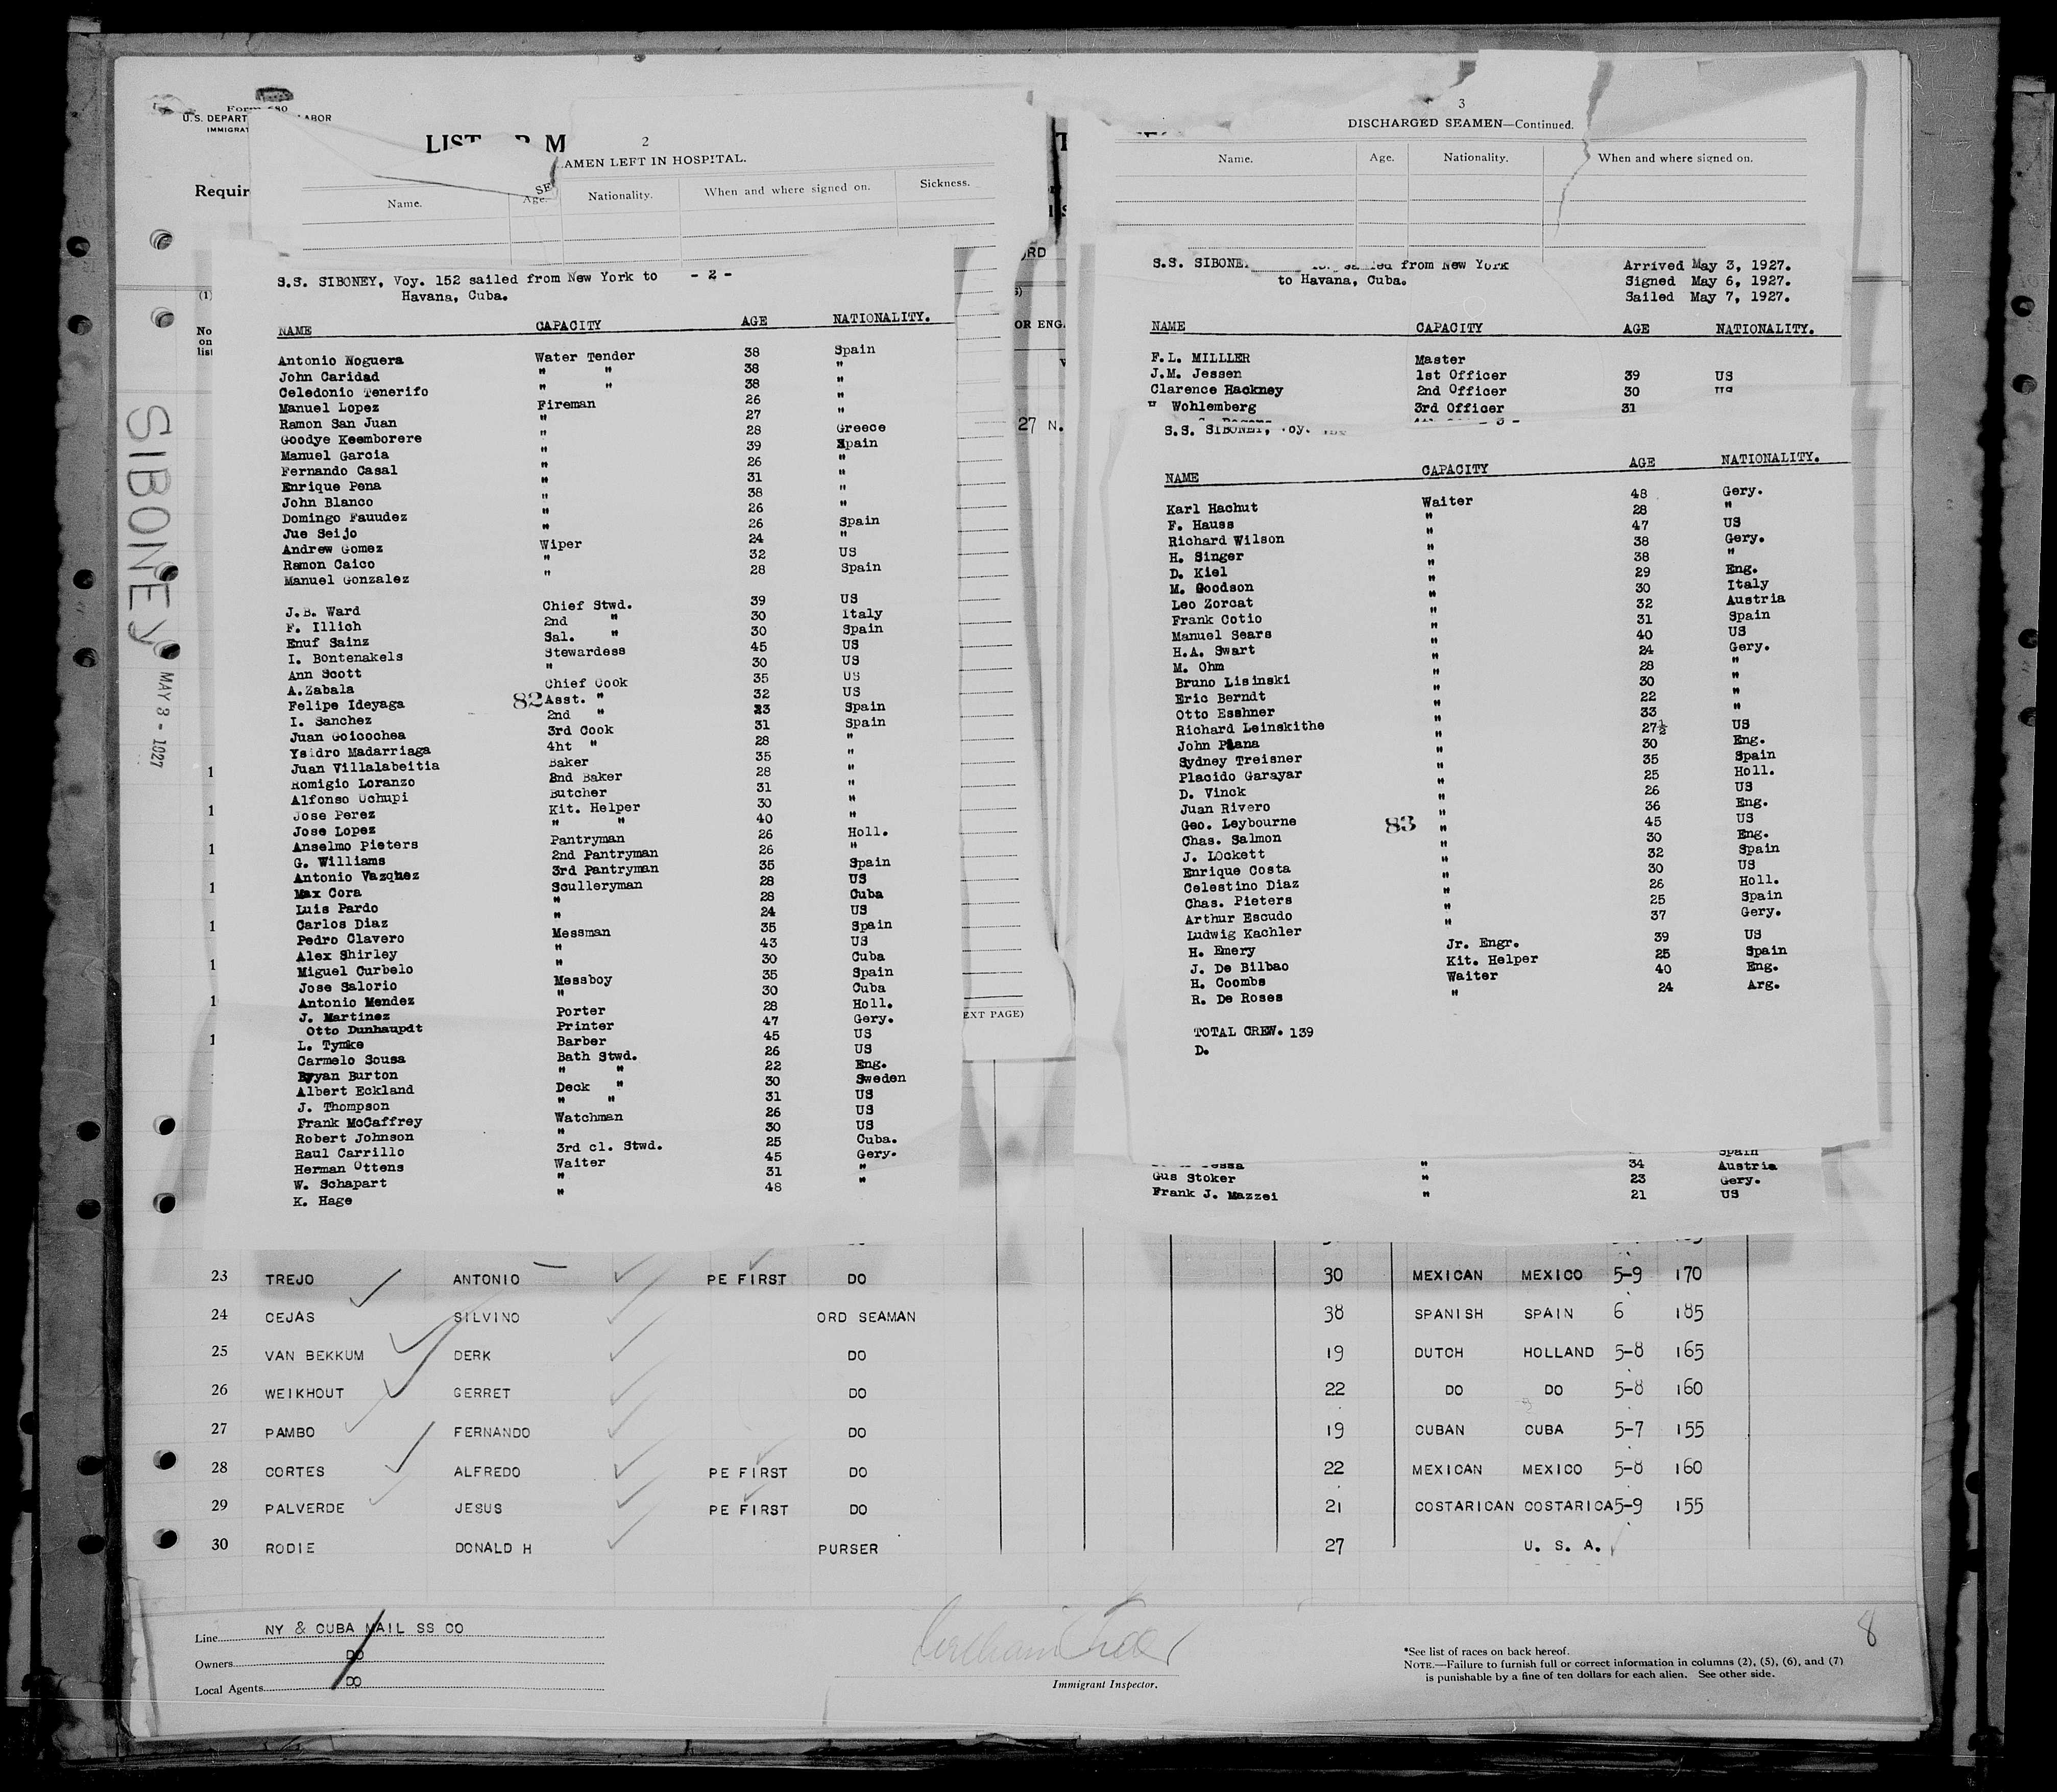 SIBONEY
MAY 3 - 1927
U.S. DEPART LABOR
IMMIGRAT
LIST OR M
Requir
2
AMEN LEFT IN HOSPITAL.
Name. Age. Nationality. When and where signed on. Sickness.
S.S. SIBONEY, Voy. 152 sailed from New York to - 2 -
Havana, Cuba.
NAME CAPACITY AGE NATIONALITY.
Antonio Noguera Water Tender 38 Spain
John Caridad " " 38 "
Celedonio Tenerifo " " 38 "
Manuel Lopez Fireman 26 "
Ramon San Juan " 27 "
Goodye Keemborere " 28 Greece
Manuel Garcia " 39 Spain
Fernando Casal " 26 "
Enrique Pena " 31 "
John Blanco " 38 "
Domingo Fauudez " 26
Jue Seijo " 26 Spain
Andrew Gomez Wiper 24 "
Ramon Caico " 32 US
Manuel Gonzalez " 28 Spain
J.B. Ward Chief Stwd. 39 US
F. Illich 2nd " 30 Italy
Enuf Sainz Sal. " 30 Spain
I. Bontenakels Stewardess 45 US
Ann Scott " 30 US
A.Zabala Chief Cook 35 US
Felipe Ideyaga 82 Asst. " 32 US
I. Sanchez 2nd " 23 Spain
Juan Goicochea 3rd Cook 31 Spain
Ysidro Madarriaga 4ht " 28 "
Juan Villalabeitia Baker 35 "
Romigio Loranzo 2nd Baker 28 "
Alfonso Uchupi Butcher 31 "
Jose Perez Kit. Helper 30 "
Jose Lopez " " 40 "
Anselmo Pieters Pantryman 26 Holl.
G. Williams 2nd Pantryman 26 "
Antonio Vazquez 3rd Pantryman 35 Spain
Max Cora Sculleryman 28 US
Luis Pardo " 28 Cuba
Carlos Diaz " 24 US
Pedro Clavero Messman 35 Spain
Alex Shirley " 43 US
Miguel Curbelo " 30 Cuba
Jose Salorio Messboy 35 Spain
Antonio Mendez " 30 Cuba
J. Martinez Porter 28 Holl.
Otto Dunhaupdt Printer 47 Gery.
L. Tymke Barber 45 US
Carmelo Sousa Bath Stwd. 26 US
Bryyan Burton " " 22 Eng.
Albert Eckland Deck " 30 Sweden
J. Thompson " " 31 US
Frank McCaffrey Watchman 26 US
Robert Johnson " 30 US
Raul Carrillo 3rd cl. Stwd. 25 Cuba.
Herman Ottens Waiter 45 Gery.
W. Schapart " 31 "
K. Hage " 48 "
3
DISCHARGED SEAMEN—Continued.
Name. Age. Nationality. When and where signed on.
S.S. SIBONE sailed from New York Arrived May 3, 1927.
to Havana, Cuba. Signed May 6, 1927.
Sailed May 7, 1927.
NAME CAPACITY AGE NATIONALITY.
F.L. MILLLER Master
J.M. Jessen 1st Officer 39 US
Clarence Hackney 2nd Officer 30 US
" Wohlemberg 3rd Officer 31
S.S. SIBONEY, Voy. - 3 -
NAME CAPACITY AGE NATIONALITY.
Karl Hachut Waiter 48 Gery.
F. Hauss " 28 "
Richard Wilson " 47 US
H. Singer " 38 Gery.
D. Kiel " 38 "
M. Goodson " 29 Eng.
Leo Zorcat " 30 Italy
Frank Cotio " 32 Austria
Manuel Sears " 31 Spain
H.A. Swart " 40 US
M. Ohm " 24 Gery.
Bruno Lisinski " 28 "
Eric Berndt " 30 "
Otto Esshner " 22 "
Richard Leinskithe " 33 "
John Plana " 27½ US
Sydney Treisner " 30 Eng.
Placido Garayar " 35 Spain
D. Vinck " 25 Holl.
Juan Rivero " 26 US
Geo. Leybourne 83 " 36 Eng.
Chas. Salmon " 45 US
J. LOckett " 30 Eng.
Enrique Costa " 32 Spain
Celestino Diaz " 30 US
Chas. Pieters " 26 Holl.
Arthur Escudo " 25 Spain
Ludwig Kachler " 37 Gery.
H. Emery Jr. Engr. 39 US
J. De Bilbao Kit. Helper 25 Spain
H. Coombs Waiter 40 Eng.
R. De Roses " 24 Arg.
TOTAL CREW. 139
D.
Spain
" 34 Austria
Gus Stoker " 23 Gery.
Frank J. Mazzei " 21 US
ORD
OR ENG.
27 N.
EXT PAGE)
23 TREJO ANTONIO PE FIRST DO 30 MEXICAN MEXICO 5-9 170
24 CEJAS SILVINO ORD SEAMAN 38 SPANISH SPAIN 6 185
25 VAN BEKKUM DERK DO 19 DUTCH HOLLAND 5-8 165
26 WEIKHOUT GERRET DO 22 DO DO 5-8 160
27 PAMBO FERNANDO DO 19 CUBAN CUBA 5-7 155
28 CORTES ALFREDO PE FIRST DO 22 MEXICAN MEXICO 5-8 160
29 PALVERDE JESUS PE FIRST DO 21 COSTARICAN COSTARICA 5-9 155
30 RODIE DONALD H PURSER 27 U. S. A.
Line NY & CUBA MAIL SS CO
Owners DO
Local Agents DO
Immigrant Inspector.
8
*See list of races on back hereof.
NOTE.—Failure to furnish full or correct information in columns (2), (5), (6), and (7)
is punishable by a fine of ten dollars for each alien. See other side.